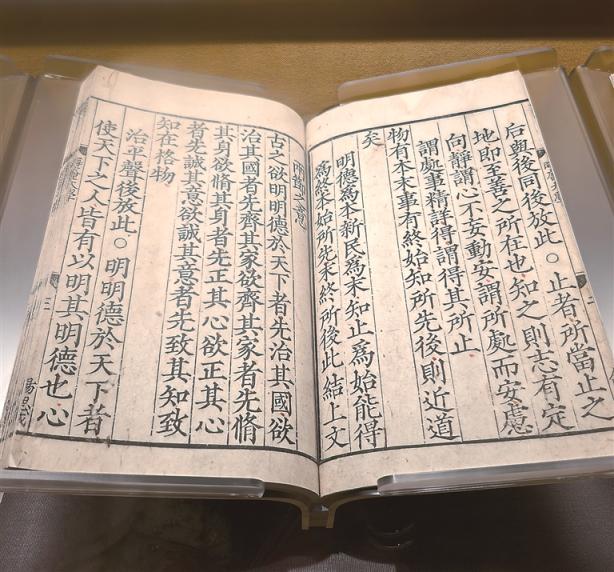 后與後同後放此。止者所當止之
地即至善之所在也知之則志有定
向靜謂心不妄動安謂所處而安慮
謂處事精詳得謂得其所止
物有本末事有終始知所先後則近道
矣
明德爲本新民爲末知止爲始能得
爲終本始所先末終所後此結上文
兩節之意
古之欲明明德於天下者先治其國欲
治其國者先齊其家欲齊其家者先脩
其身欲脩其身者先正其心欲正其心
者先誠其意欲誠其意者先致其知致
知在格物
治平聲後放此。明明德於天下者
使天下之人皆有以明其明德也心
三